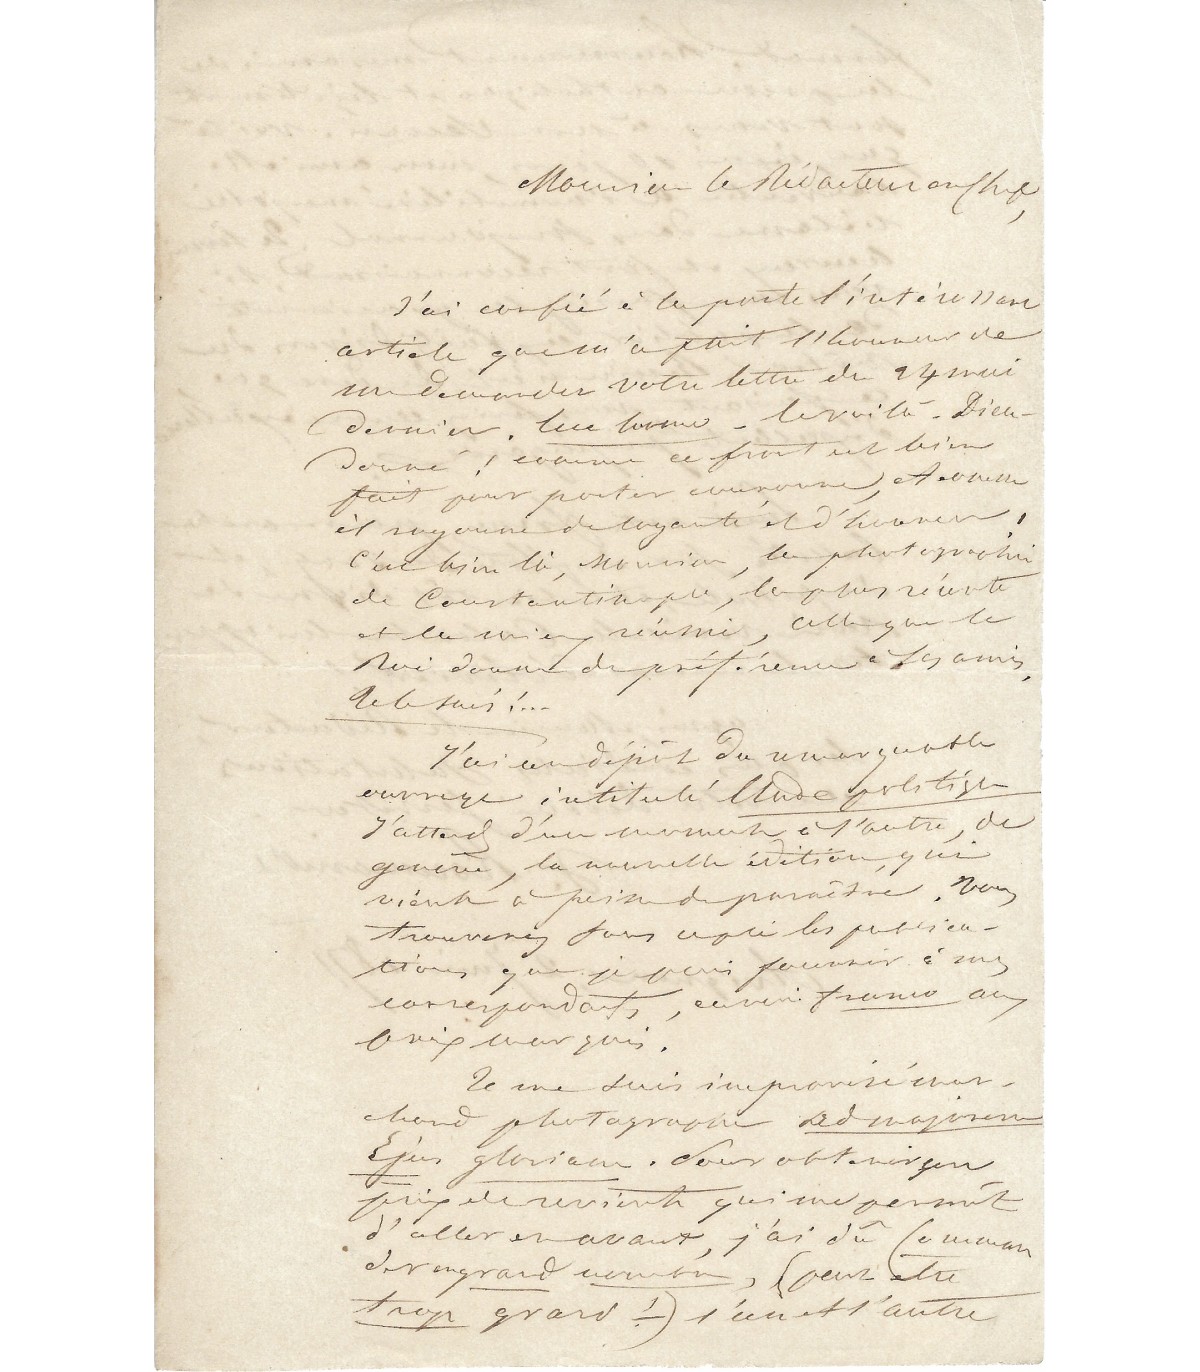 Monsieur le Rédacteur en Chef,
J'ai confié à la poste l'intéressant
article que m'a fait l'honneur de
me demander votre lettre du 24 mai
dernier. Ecce homo - le voilà - Dieu-
donné ! comme ce front est bien
fait pour porter couronne, et comme
il rayonne de loyauté et d'honneur !
C'est bien là, Monsieur, la photographie
de Constantinople, la plus récente
et la mieux réussie, celle que le
Roi donne de préférence à ses amis,
Je le sais !...
J'ai un dépôt du remarquable
ouvrage intitulé Etude politique
J'attends d'un moment à l'autre, de
Genève, la nouvelle édition qui
vient à peine de paraître. Vous
trouverez sous copie les publica-
tions que je puis fournir à mes
correspondants, envoi franco aux
prix marqués.
Je me suis improvisé mar-
chand photographe ad majorem
Ejus gloriam. Pour obtenir un
prix de revient qui me permît
d'aller en avant, j'ai dû comman
der un grand nombre, (peut être
trop grand !) l'un et l'autre